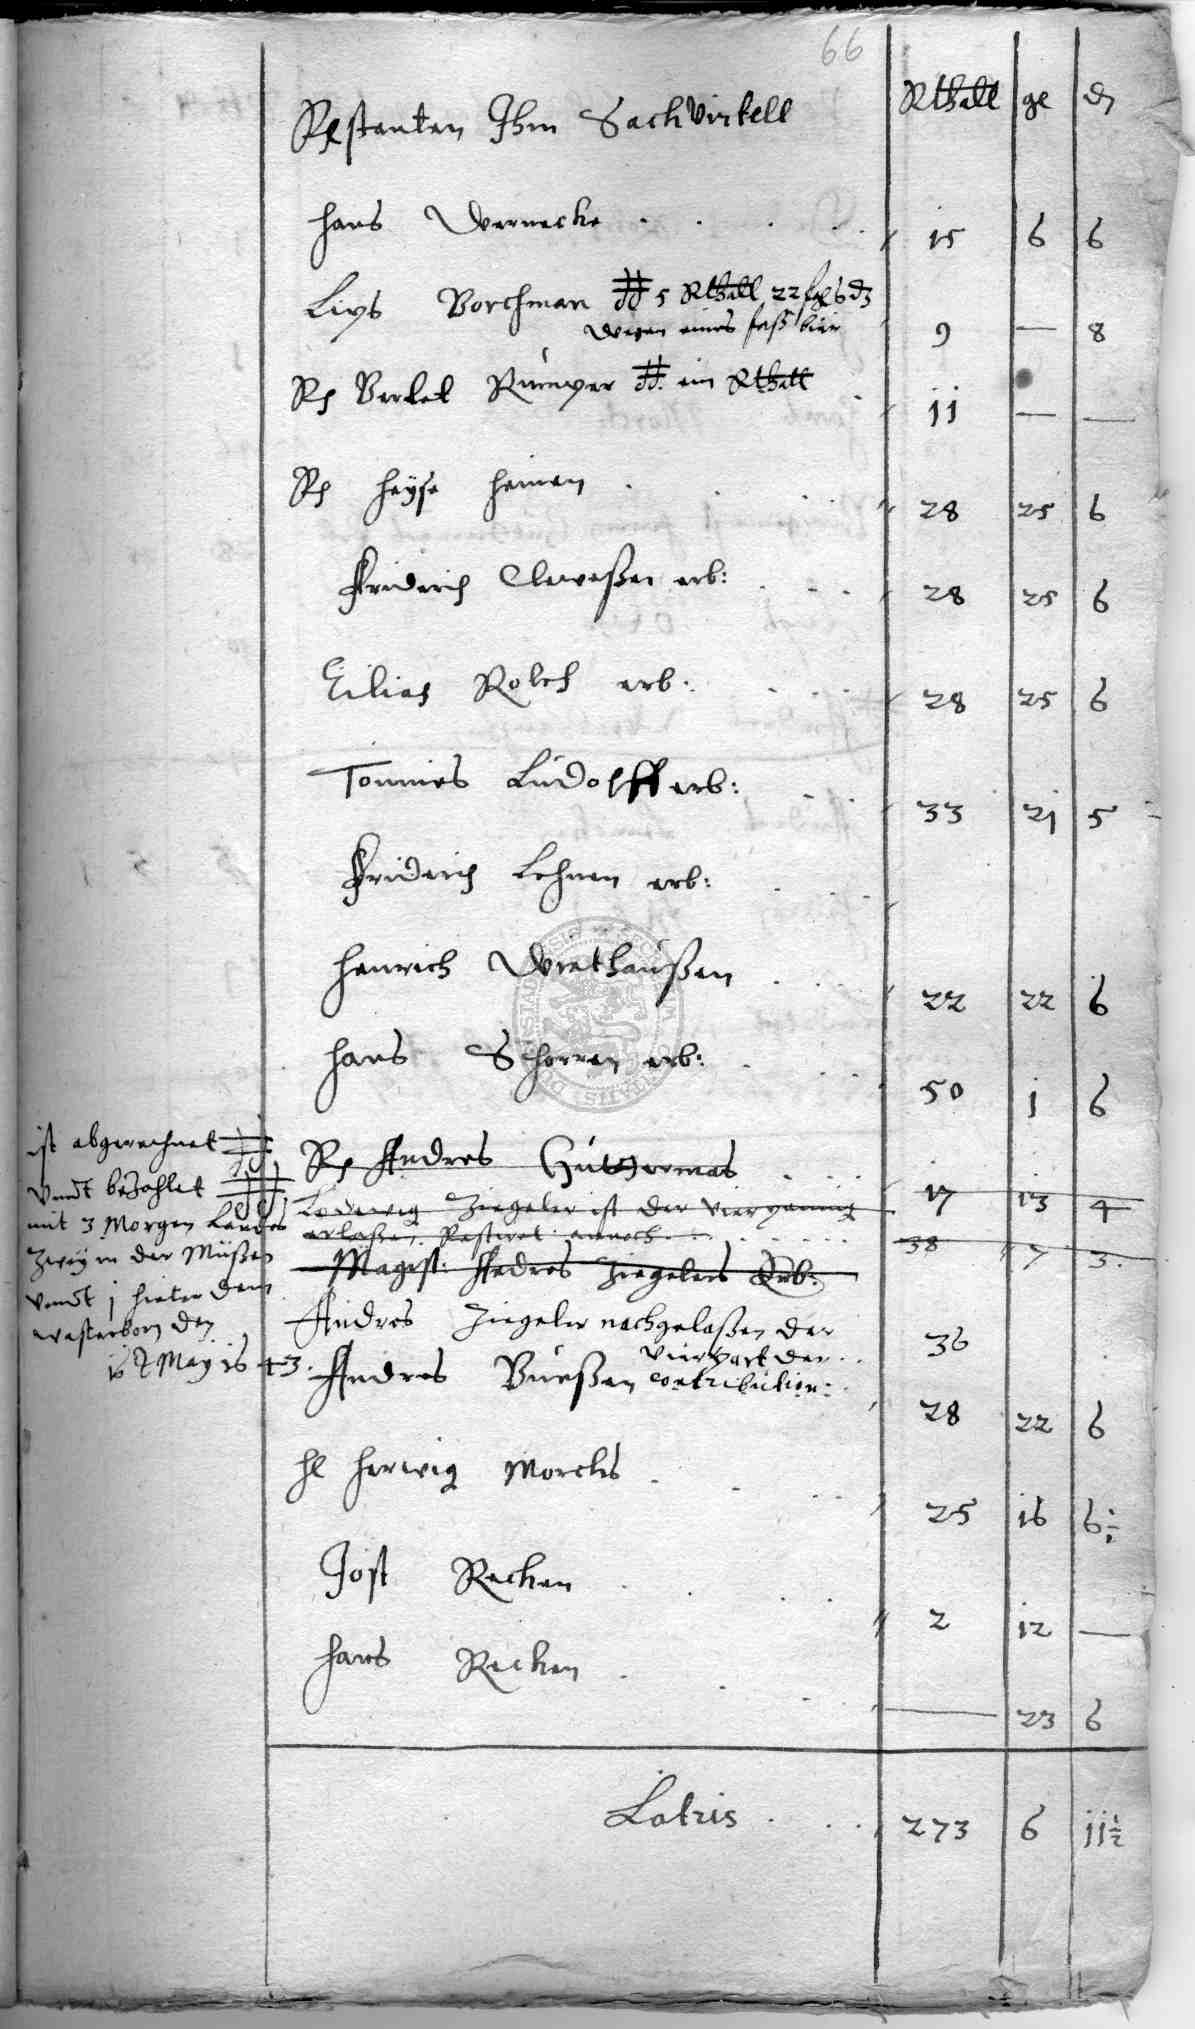 66
Restanten Ihm Sachvirtell Rthall gl d
Hans Wernecke 15 6 6
Lips Borchman dd 5 Rthall 22 6 d
wegen eines faß bier 9 — 8
Rp Bertel dd. ein Rthall 11 — —
Rp Heyse Heinen 28 25 6
Friderich Clawaßen erb: 28 25 6
Eilias Rolch erb: 28 25 6
Tonnies Ludolff erb: 33 21 5
Friderich Lehnen erb:
Henrich Wiethaußen 22 22 6
Hans Schorren erb: 50 1 6
Rp Andres 17 13 4
Lodewig Ziegeler ist der vier
erlaßen. Restiret annoch 38 7 3
Magist: Andres Ziegelers Erb:
Andres Ziegeler nachgelaßen der
vierpart der 36
contribution:
Andres Bueßen 28 22 6
Hl Herwig Morckes 25 16 6½
Jost Recken 2 12 —
Hans Recken — 23 6
Latris 273 6 11½
ist abgerechnet
vndt bezahlet
mit 3 Morgen Landes
zwey in der Müßen
vndt 1 hinter dem
westerborn den
May 1643.